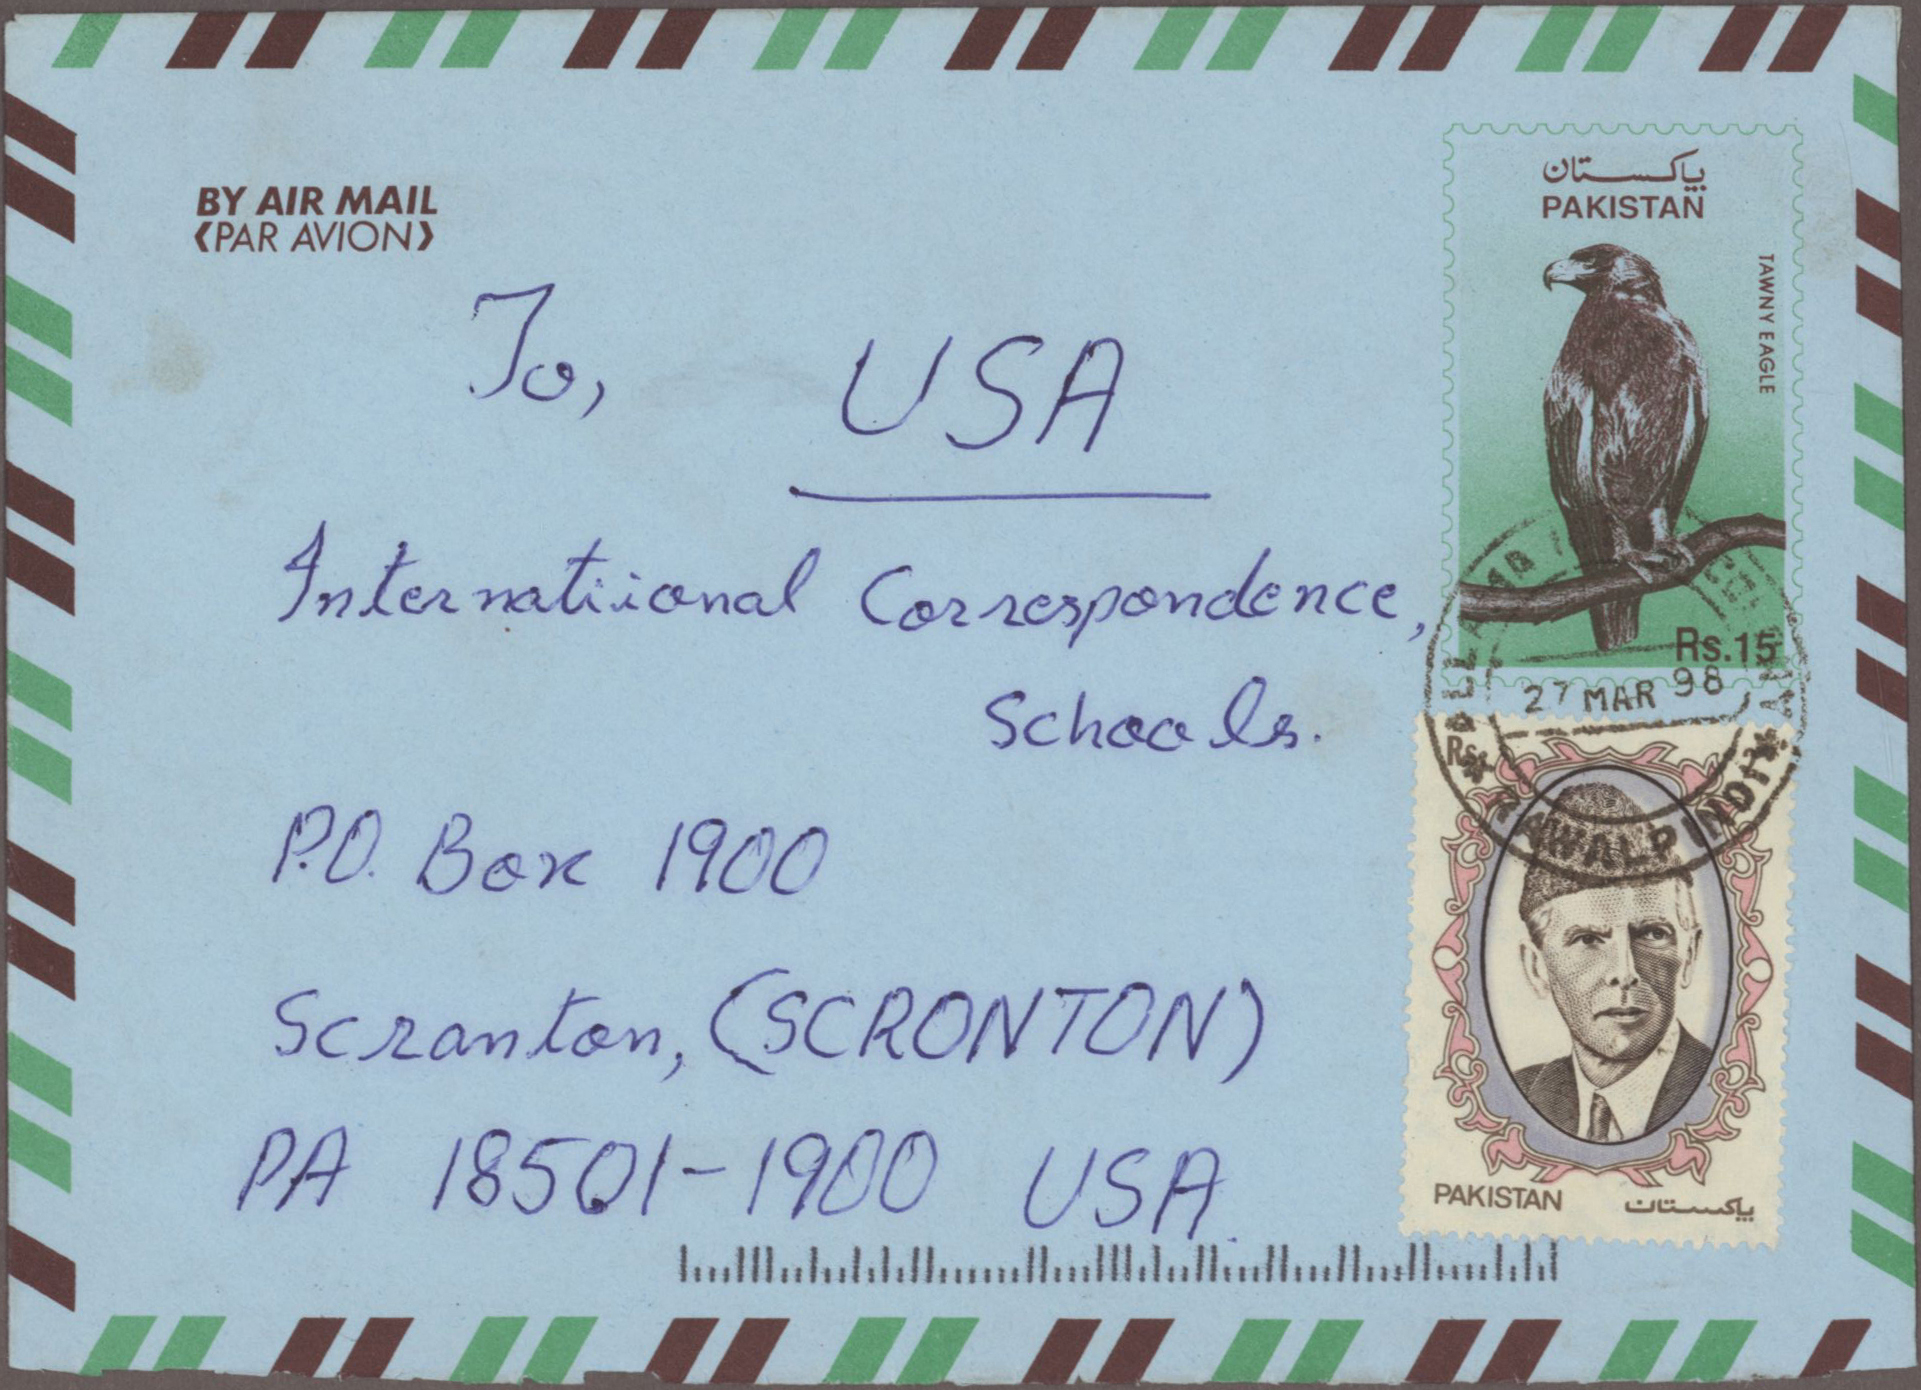 BY AIR MAIL
(PAR AVION)
پاکستان
PAKISTAN
TAWNY EAGLE
Rs.15
To, USA
Internatiional Correspondence,
Schools.
P.O. Box 1900
Scranton, (SCRONTON)
PA 18501-1900 USA
27 MAR 98
RAWALPINDI
Rs.
PAKISTAN پاکستان